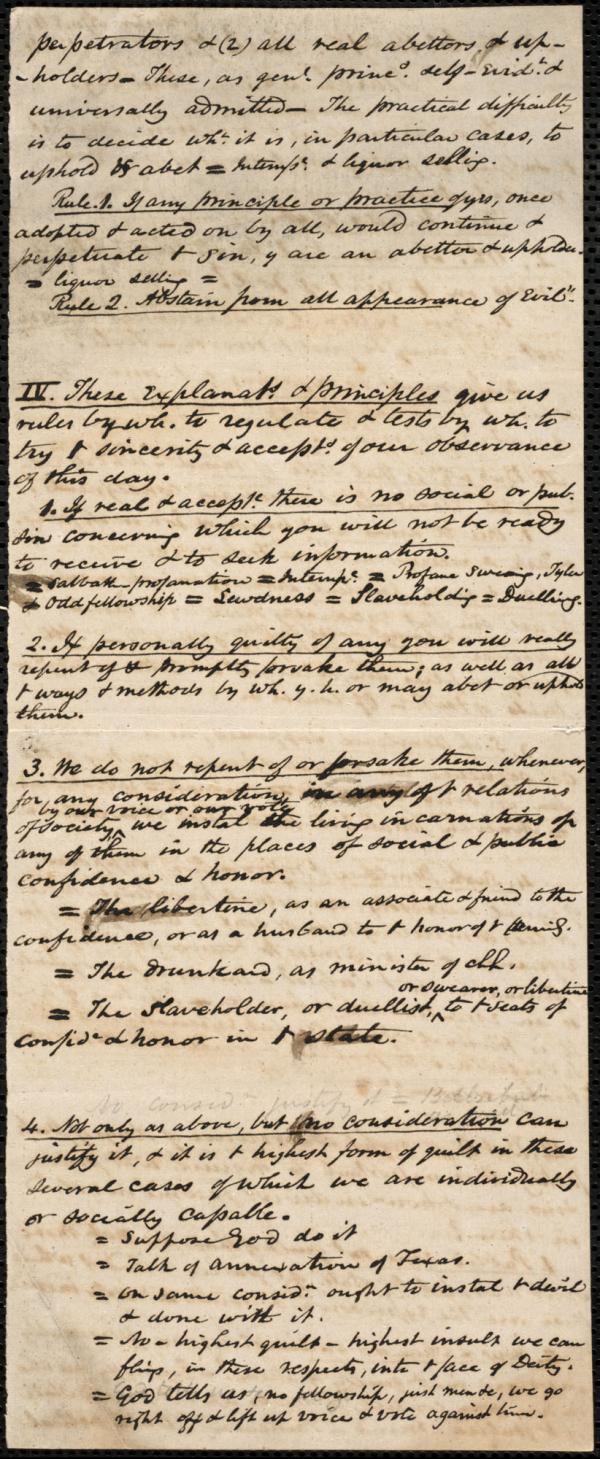 perpetrators & (2) all real abettors & up-
-holders = These, as genl. princs. self-evidt. &
universally admitted = The practical difficulty
is to decide wht. it is, in particular cases, to
uphold & abet = Intempe. & liquor sellig.
Rule. 1. If any principle or practice of yrs, once
adopted & acted on by all, would continue &
perpetuate t sin, y are an abettor & upholder.
= liquor sellig =
Rule 2. Abstain from all appearance of Evil".
IV. These Explanats. & principles give us
rules by wh. to regulate & tests by wh. to
try t sincerity & accepts. of our observance
of this day.
1. If real & accepte. there is no social or pub.
sin concerning which you will not be ready
to receive & to seek information.
= Sabbath-profanation = Intempe. = Profane Swearig, Tyler
& Oddfellowship = Lewdness = Slaveholdig = Duelling.
2. If personally guilty of any you will really
repent of & promptly forsake them; as well as all
t ways & methods by wh. y. h. or may abet or uphold
them.
3. We do not repent of or forsake them, whenever,
for any consideration, in any of t relations
by our voice or our vote
of society, we instal the living incarnations of
any of them in the places of social & public
confidence & honor.
= The libertine, as an associate & friend to the
confidence, or as a husband to t honor of t family.
= The drunkard, as minister of chh.
or swearer, or libertine
= The Slaveholder, or duellist, to t seats of
confide & honor in t state.
4. Not only as above, but no consideration can
justify it, & it is t highest form of guilt in these
several cases of which we are individually
or socially capable.
= Suppose God do it
= Talk of annexation of Texas.
= On same considn. ought to instal t devil
& done with it.
= No - highest guilt - highest insult we can
fling, in these respects, into t face of Deity.
= God tells us, no fellowship, just men &c, we go
right off & lift up voice & vote against him.